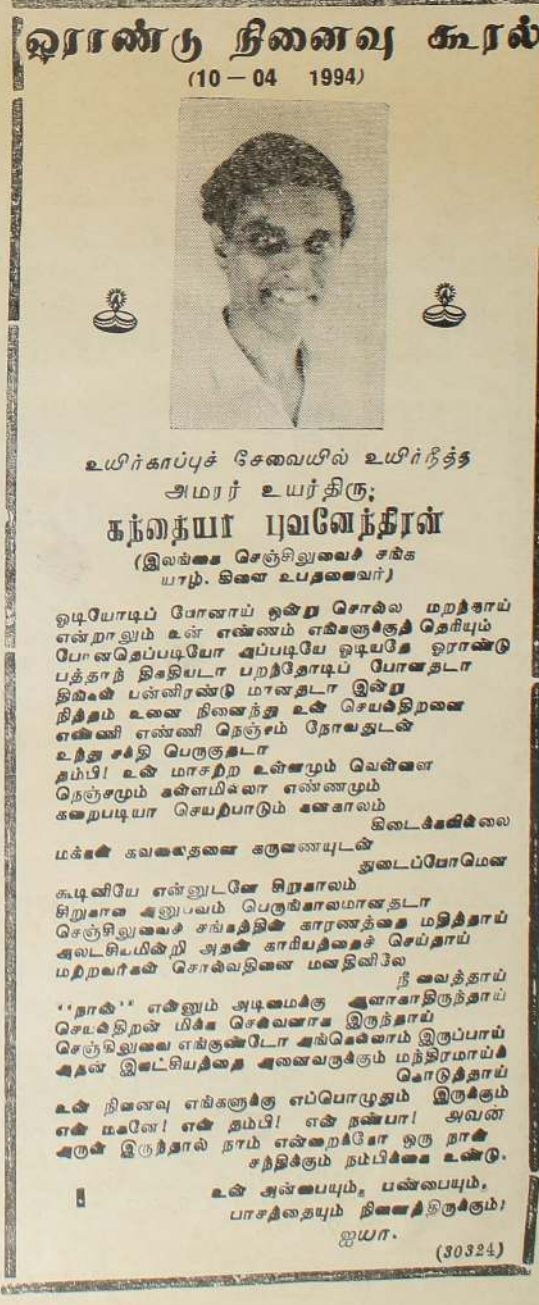 ஓராண்டு நினைவு கூரல்
(10 — 04 1994)
உயிர்காப்புச் சேவையில் உயிர்நீத்த
அமரர் உயர்திரு;
கந்தையா புவனேந்திரன்
(இலங்கை செஞ்சிலுவைச் சங்க
யாழ். கிளை உபதலைவர்)
ஓடியோடிப் போனாய் ஒன்று சொல்ல மறந்தாய்
என்றாலும் உன் எண்ணம் எங்களுக்குத் தெரியும்
போனதெப்படியோ அப்படியே ஓடியதே ஓராண்டு
பத்தாந் திகதியடா பறந்தோடிப் போனதடா
திங்கள் பன்னிரண்டு மானதடா இன்று
நித்தம் உனை நினைந்து உன் செயல்திறனை
எண்ணி எண்ணி நெஞ்சம் நோவதுடன்
உந்து சக்தி பெருகுதடா
தம்பி! உன் மாசற்ற உள்ளமும் வெள்ளை
நெஞ்சமும் கள்ளமில்லா எண்ணமும்
கறைபடியா செயற்பாடும் கனகாலம்
கிடைக்கவில்லை
மக்கள் கவலைதனை கருணையுடன்
துடைப்போமென
கூடினியே என்னுடனே சிறுகாலம்
சிறுகால அனுபவம் பெருங்காலமானதடா
செஞ்சிலுவைச் சங்கத்தின் காரணத்தை மதித்தாய்
அலட்சியமின்றி அதன் காரியத்தைச் செய்தாய்
மற்றவர்கள் சொல்வதினை மனதினிலே
நீ வைத்தாய்
''நான்'' என்னும் அடிமைக்கு ஆளாகாதிருந்தாய்
செயல்திறன் மிக்க செல்வனாக இருந்தாய்
செஞ்சிலுவை எங்குண்டோ அங்கெல்லாம் இருப்பாய்
அதன் இலட்சியத்தை அனைவருக்கும் மந்திரமாய்க்
கொடுத்தாய்
உன் நினைவு எங்களுக்கு எப்பொழுதும் இருக்கும்
என் மகனே! என் தம்பி! என் நண்பா! அவன்
அருள் இருந்தால் நாம் என்றைக்கோ ஒரு நாள்
சந்திக்கும் நம்பிக்கை உண்டு.
உன் அன்பையும், பண்பையும்,
பாசத்தையும் நினைத்திருக்கும்!
ஐயா.
(30324)